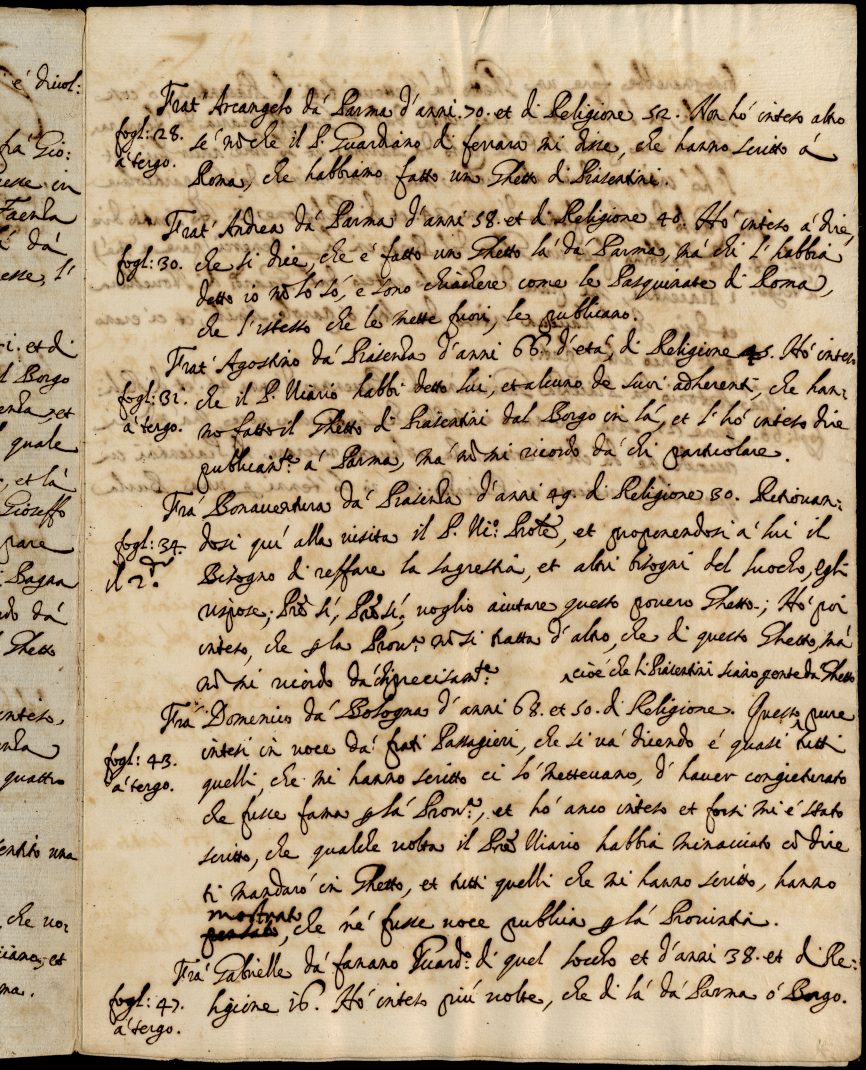 è divol:
frà Gio:
Faenza
dà
esse, l'
i. et di
l Borgo
enza, et
quale
, et là
Gioseffo
Bagna
dà
Ghetto
inteso,
quattro
sentito una
, che uo:
ma.
Frat' Arcangelo dà Parma d'anni 70. et di Religione 52. Non hò inteso altro
fogl: 28.
à tergo.
se nō che il P. Guardiano di ferrara mi disse, che hanno scritto à
Roma, che habbiamo fatto un Ghetto di Piasentini.
Frat' Andrea dà Parma d'anni 58. et di Religione 40. Hò inteso à dire,
fogl: 30.
che si dice, che è fatto un Ghetto là dà Parma, mà chi l'habbia
detto io nō lo sò, e sono chiachere come le Pasquinate di Roma,
che l'istesso che le mette fuori, le publicano.
Frat' Agostino dà Piasenza d'anni 66. d'età, di Religione 45. Hò inteso
fogl: 31.
à tergo.
che il P. Vicario habbi detto lui, et alcuno de suoi adherenti, che han:
no fatto il Ghetto di Piasentini dal Borgo in là, et l'hò inteso dire
publicam.te à Parma, mà nō mi ricordo dà chi particolare.
Frà Bonaventura dà Piasenza d'anni 49. di Religione 30. Ritrovan:
fogl: 34.
il 2.º
dosi quì alla visita il P. Vic.º Prōle, et proponendosi à lui il
Bisogno di reffare la sagrestia, et altri bisogni del luocho, egli
rispose, Prē sì, Prē sì, voglio aiutare questo povero Ghetto; Hò poi
inteso, che p la Prov.ª nō si tratta d'altro, che di questo Ghetto, mà
nō mi ricordo dà chi precisam.te
cioè che li Piasentini siano ponte da Ghetto
Frà Domenico dà Bologna d'anni 68. et 50. di Religione. Questo pure
fogl: 43.
à tergo.
intesi in voce dà frati Passagieri, che si và dicendo è quasi tutti
quelli, che mi hanno scritto ci lò mettevano, d'haver congietturato
che fusse fama p la Prov.ª, et hò anco inteso et forsi mi è stato
scritto, che qualche volta il Prē Vicario habbia minacciato cō dire
ti mandarò in Ghetto, et tutti quelli che mi hanno scritto, hanno
mostrato
, che n'è fusse voce publica p là Provintia.
Frà Gabrielle dà fanano Guard.º di quel loccho et d'anni 38. et di Re:
fogl: 47.
à tergo.
ligione 16. Hò inteso più volte, che di là dà Parma ò Borgo.